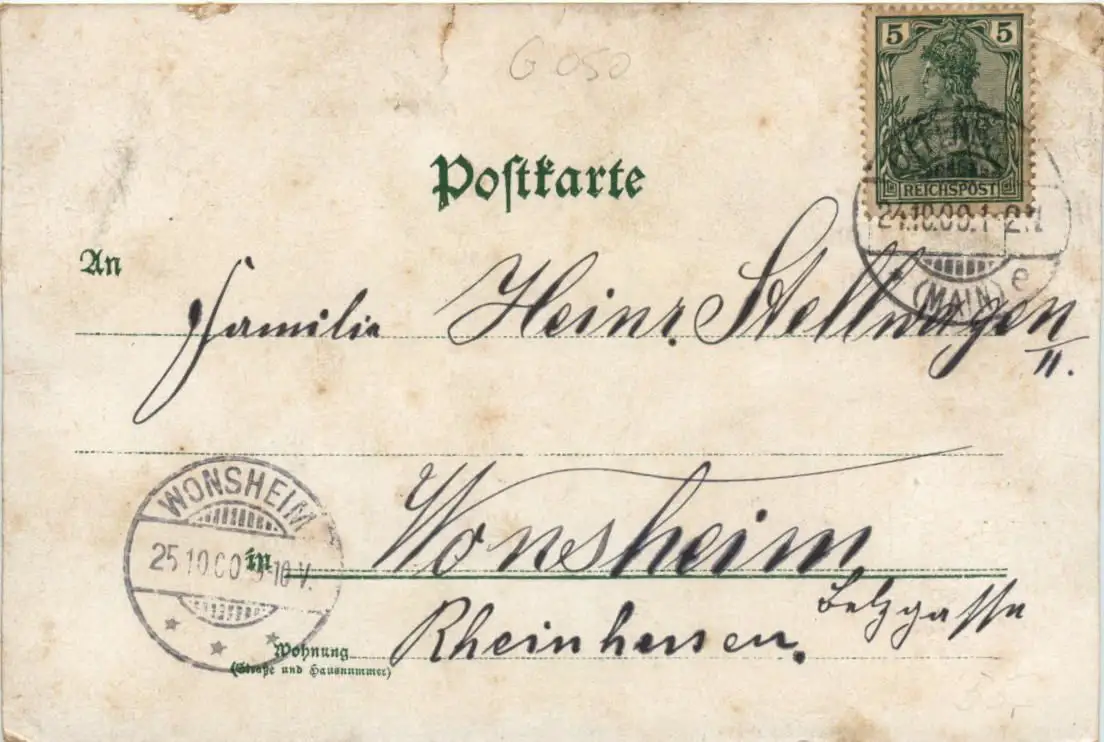 G 050
5 5
REICHSPOST
Postkarte
24.10.00.1-2N
(MAIN) e
An
Familie Heinr. Stellwagen
II.
WONSHEIM
25 10 00 9-10 V.
in Wonsheim
Rheinhessen.
Wohnung
(Straße und Hausnummer)